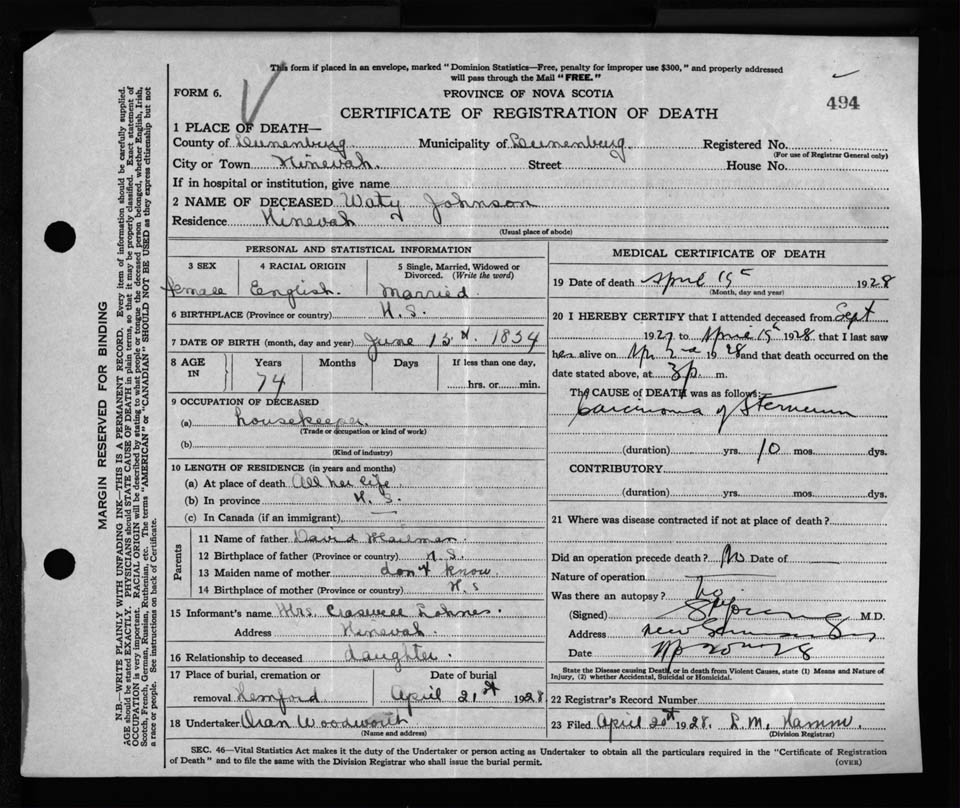 This form if placed in an envelope, marked "Dominion Statistics—Free, penalty for improper use $300," and properly addressed
will pass through the Mail "FREE."
FORM 6.
PROVINCE OF NOVA SCOTIA
494
CERTIFICATE OF REGISTRATION OF DEATH
1 PLACE OF DEATH—
County of Lunenburg Municipality of Lunenburg Registered No.
(For use of Registrar General only)
City or Town Ninevah. Street House No.
If in hospital or institution, give name
2 NAME OF DECEASED Waty Johnson
Residence Ninevah
(Usual place of abode)
PERSONAL AND STATISTICAL INFORMATION
3 SEX 4 RACIAL ORIGIN 5 Single, Married, Widowed or
Divorced. (Write the word)
female English. Married.
6 BIRTHPLACE (Province or country) N.S.
7 DATE OF BIRTH (month, day and year) June 15 1854
8 AGE IN Years Months Days If less than one day,
74 hrs. or min.
9 OCCUPATION OF DECEASED
(a) housekeeper
(Trade or occupation or kind of work)
(b)
(Kind of industry)
10 LENGTH OF RESIDENCE (in years and months)
(a) At place of death All her life
(b) In province N.S.
(c) In Canada (if an immigrant)
Parents
11 Name of father David Wailman
12 Birthplace of father (Province or country) N.S.
13 Maiden name of mother don't know.
14 Birthplace of mother (Province or country) N.S
15 Informant's name Mrs. Lohnes.
Address Ninevah.
16 Relationship to deceased daughter.
17 Place of burial, cremation or Date of burial
removal Hemford April 21st 1928
18 Undertaker Oran Woodworth
(Name and address)
MEDICAL CERTIFICATE OF DEATH
19 Date of death April 19 1928
(Month, day and year)
20 I HEREBY CERTIFY that I attended deceased from Sept
1927 to April 15 1928 that I last saw
her alive on Apr 2 1928 and that death occurred on
date stated above, at 3 p. m.
The CAUSE of DEATH was as follows:
Carcinoma of Sternum
(duration) yrs. 10 mos. dys.
CONTRIBUTORY
(duration) yrs. mos. dys.
21 Where was disease contracted if not at place of death?
Did an operation precede death? No Date of
Nature of operation
Was there an autopsy? no
(Signed) M.D.
Address New
Date
State the Disease causing Death, or in death from Violent Causes, state (1) Means and Nature of
Injury, (2) whether Accidental, Suicidal or Homicidal.
22 Registrar's Record Number
23 Filed April 20th 1928. R.M. Hamm
(Division Registrar)
SEC. 46—Vital Statistics Act makes it the duty of the Undertaker or person acting as Undertaker to obtain all the particulars required in the "Certificate of Registration
of Death" and to file the same with the Division Registrar who shall issue the burial permit.
(OVER)
MARGIN RESERVED FOR BINDING
N.B.—WRITE PLAINLY WITH UNFADING INK—THIS IS A PERMANENT RECORD. Every item of information should be carefully supplied.
AGE should be stated EXACTLY. PHYSICIANS should STATE CAUSE OF DEATH in plain terms, so that it may be properly classified. Exact statement of
OCCUPATION is very important. RACIAL ORIGIN will be described by stating to what people or tongue the deceased person belonged, whether English, Irish,
Scotch, French, German, Russian, Ruthenian, etc. The terms "AMERICAN" or "CANADIAN" SHOULD NOT BE USED as they express citizenship but not
a race or people. See instructions on back of Certificate.